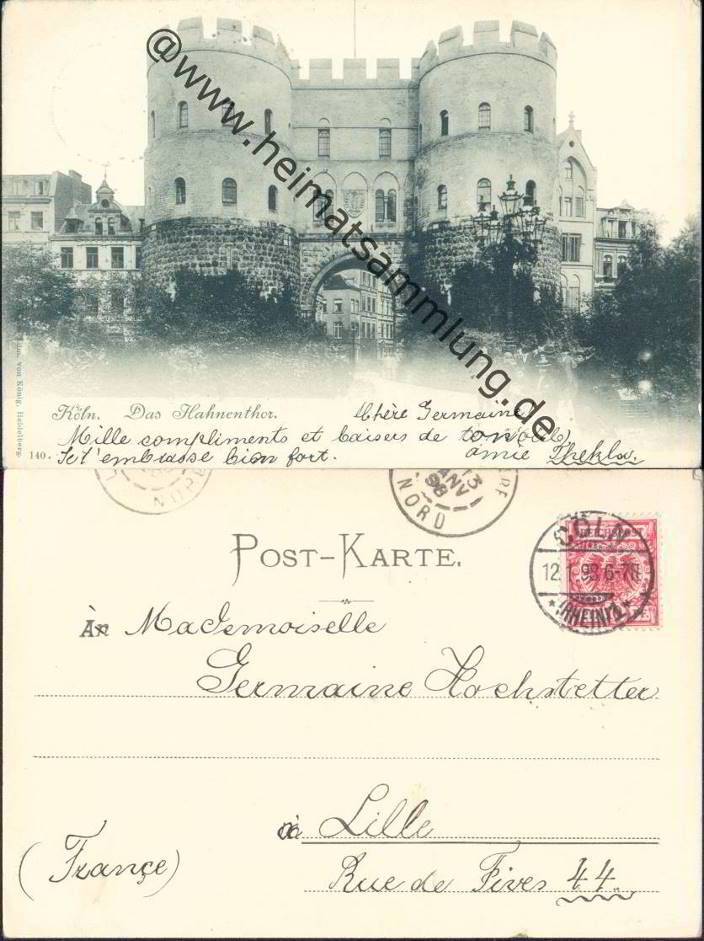 @www.heimatsammlung.de
von König, Heidelberg.
Köln. Das Hahnenthor.
Chère Germaine,
140. Mille compliments et baisers de ton
Je t'embrasse bien fort. amie Thekla.
NORD
13
JANV
98
NORD
POST-KARTE.
CÖLN
12.1.98 6-7N.
*(RHEIN)1*
À Mademoiselle
Germaine Hochstetter
à Lille
(Françe)
Rue de Fives 44.